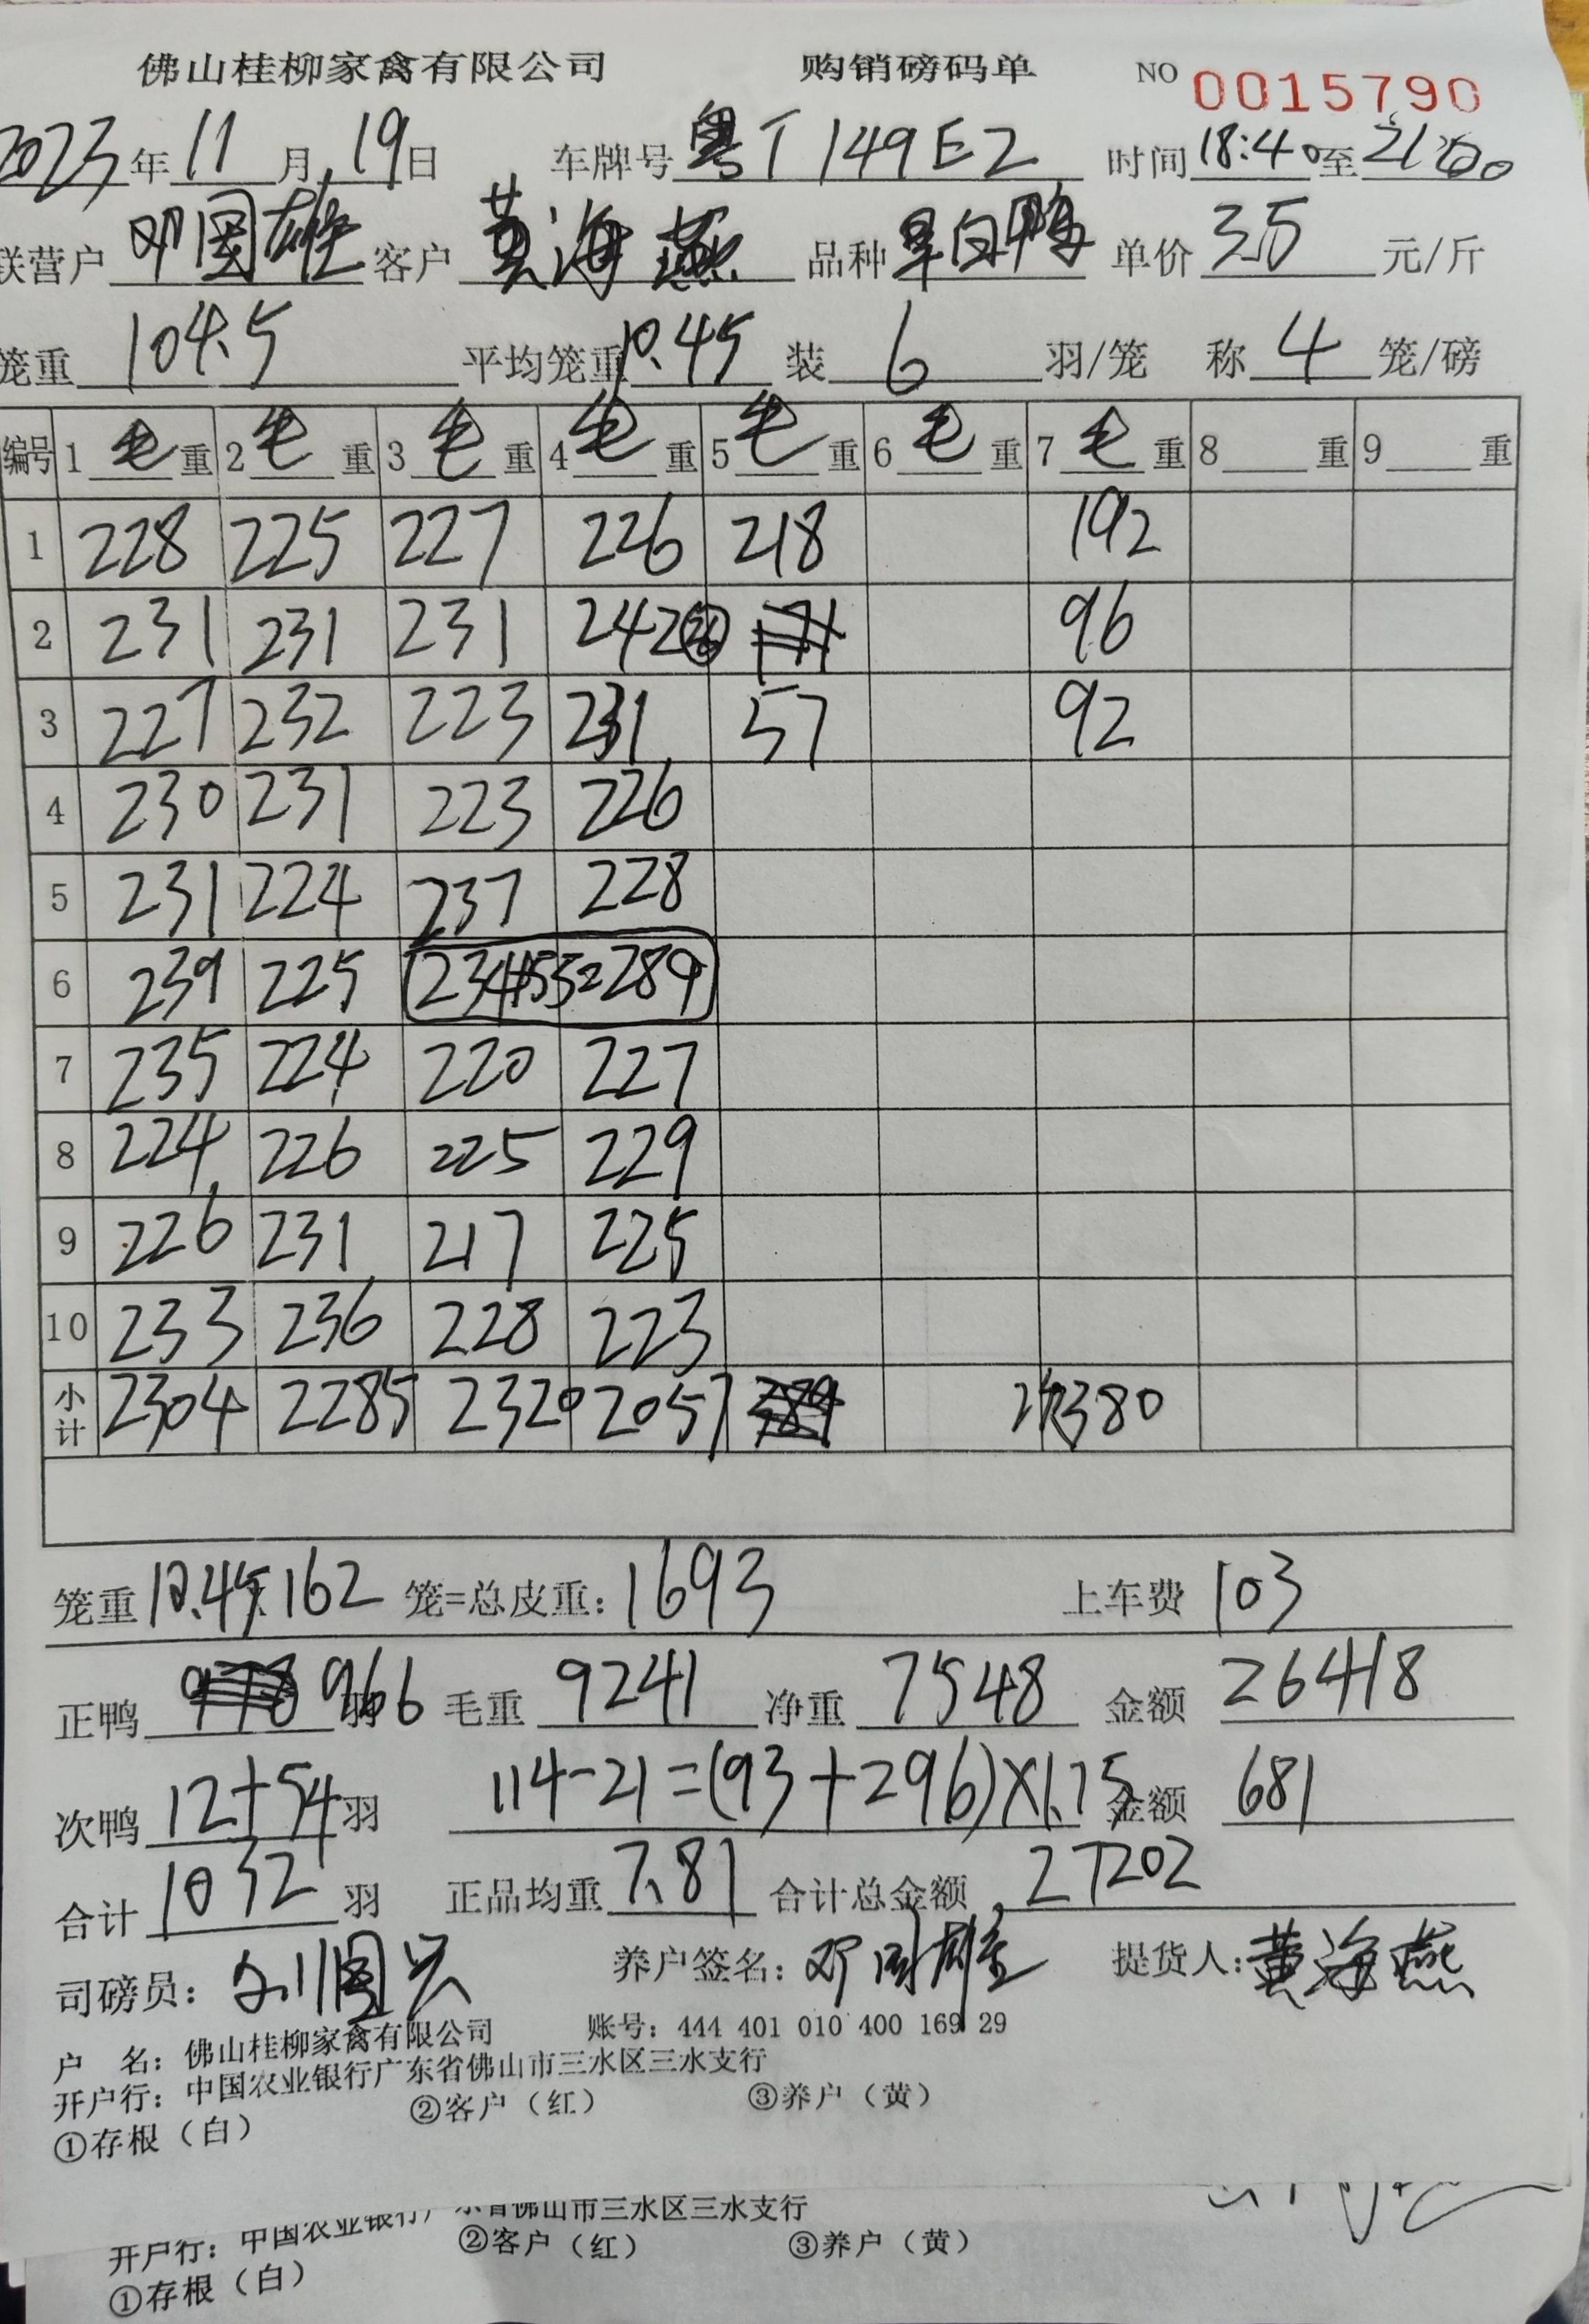 佛山桂柳家禽有限公司 购销磅码单 NO 0015790
2023年11月19日 车牌号 粤T149E2 时间18:40至21:00
联营户 邓国雄 客户 黄海燕 品种 旱白鸭 单价 3.5 元/斤
笼重 104.5 平均笼重 10.45 装 6 羽/笼 称 4 笼/磅
编号 1 毛 重 2 毛 重 3 毛 重 4 毛 重 5 毛 重 6 毛 重 7 毛 重 8 重 9 重
1 228 225 227 226 218 192
2 231 231 231 242 96
3 227 232 223 231 57 92
4 230 231 223 226
5 231 224 237 228
6 239 225 234+55=289
7 235 224 220 227
8 224 226 225 229
9 226 231 217 225
10 233 236 228 223
小计 2304 2285 2320 2057 次380
笼重 10.45×162 笼=总皮重: 1693 上车费 103
正鸭 966 羽 毛重 9241 净重 7548 金额 26418
次鸭 12+54 羽 114-21=(93+296)×1.75 金额 681
合计 1032 羽 正品均重 7.81 合计总金额 27202
司磅员: 养户签名: 邓国雄 提货人: 黄海燕
户 名: 佛山桂柳家禽有限公司 账号: 444 401 010 400 169 29
开户行: 中国农业银行广东省佛山市三水区三水支行
①存根（白） ②客户（红） ③养户（黄）
开户行: 中国农业银行广东省佛山市三水区三水支行
①存根（白） ②客户（红） ③养户（黄）